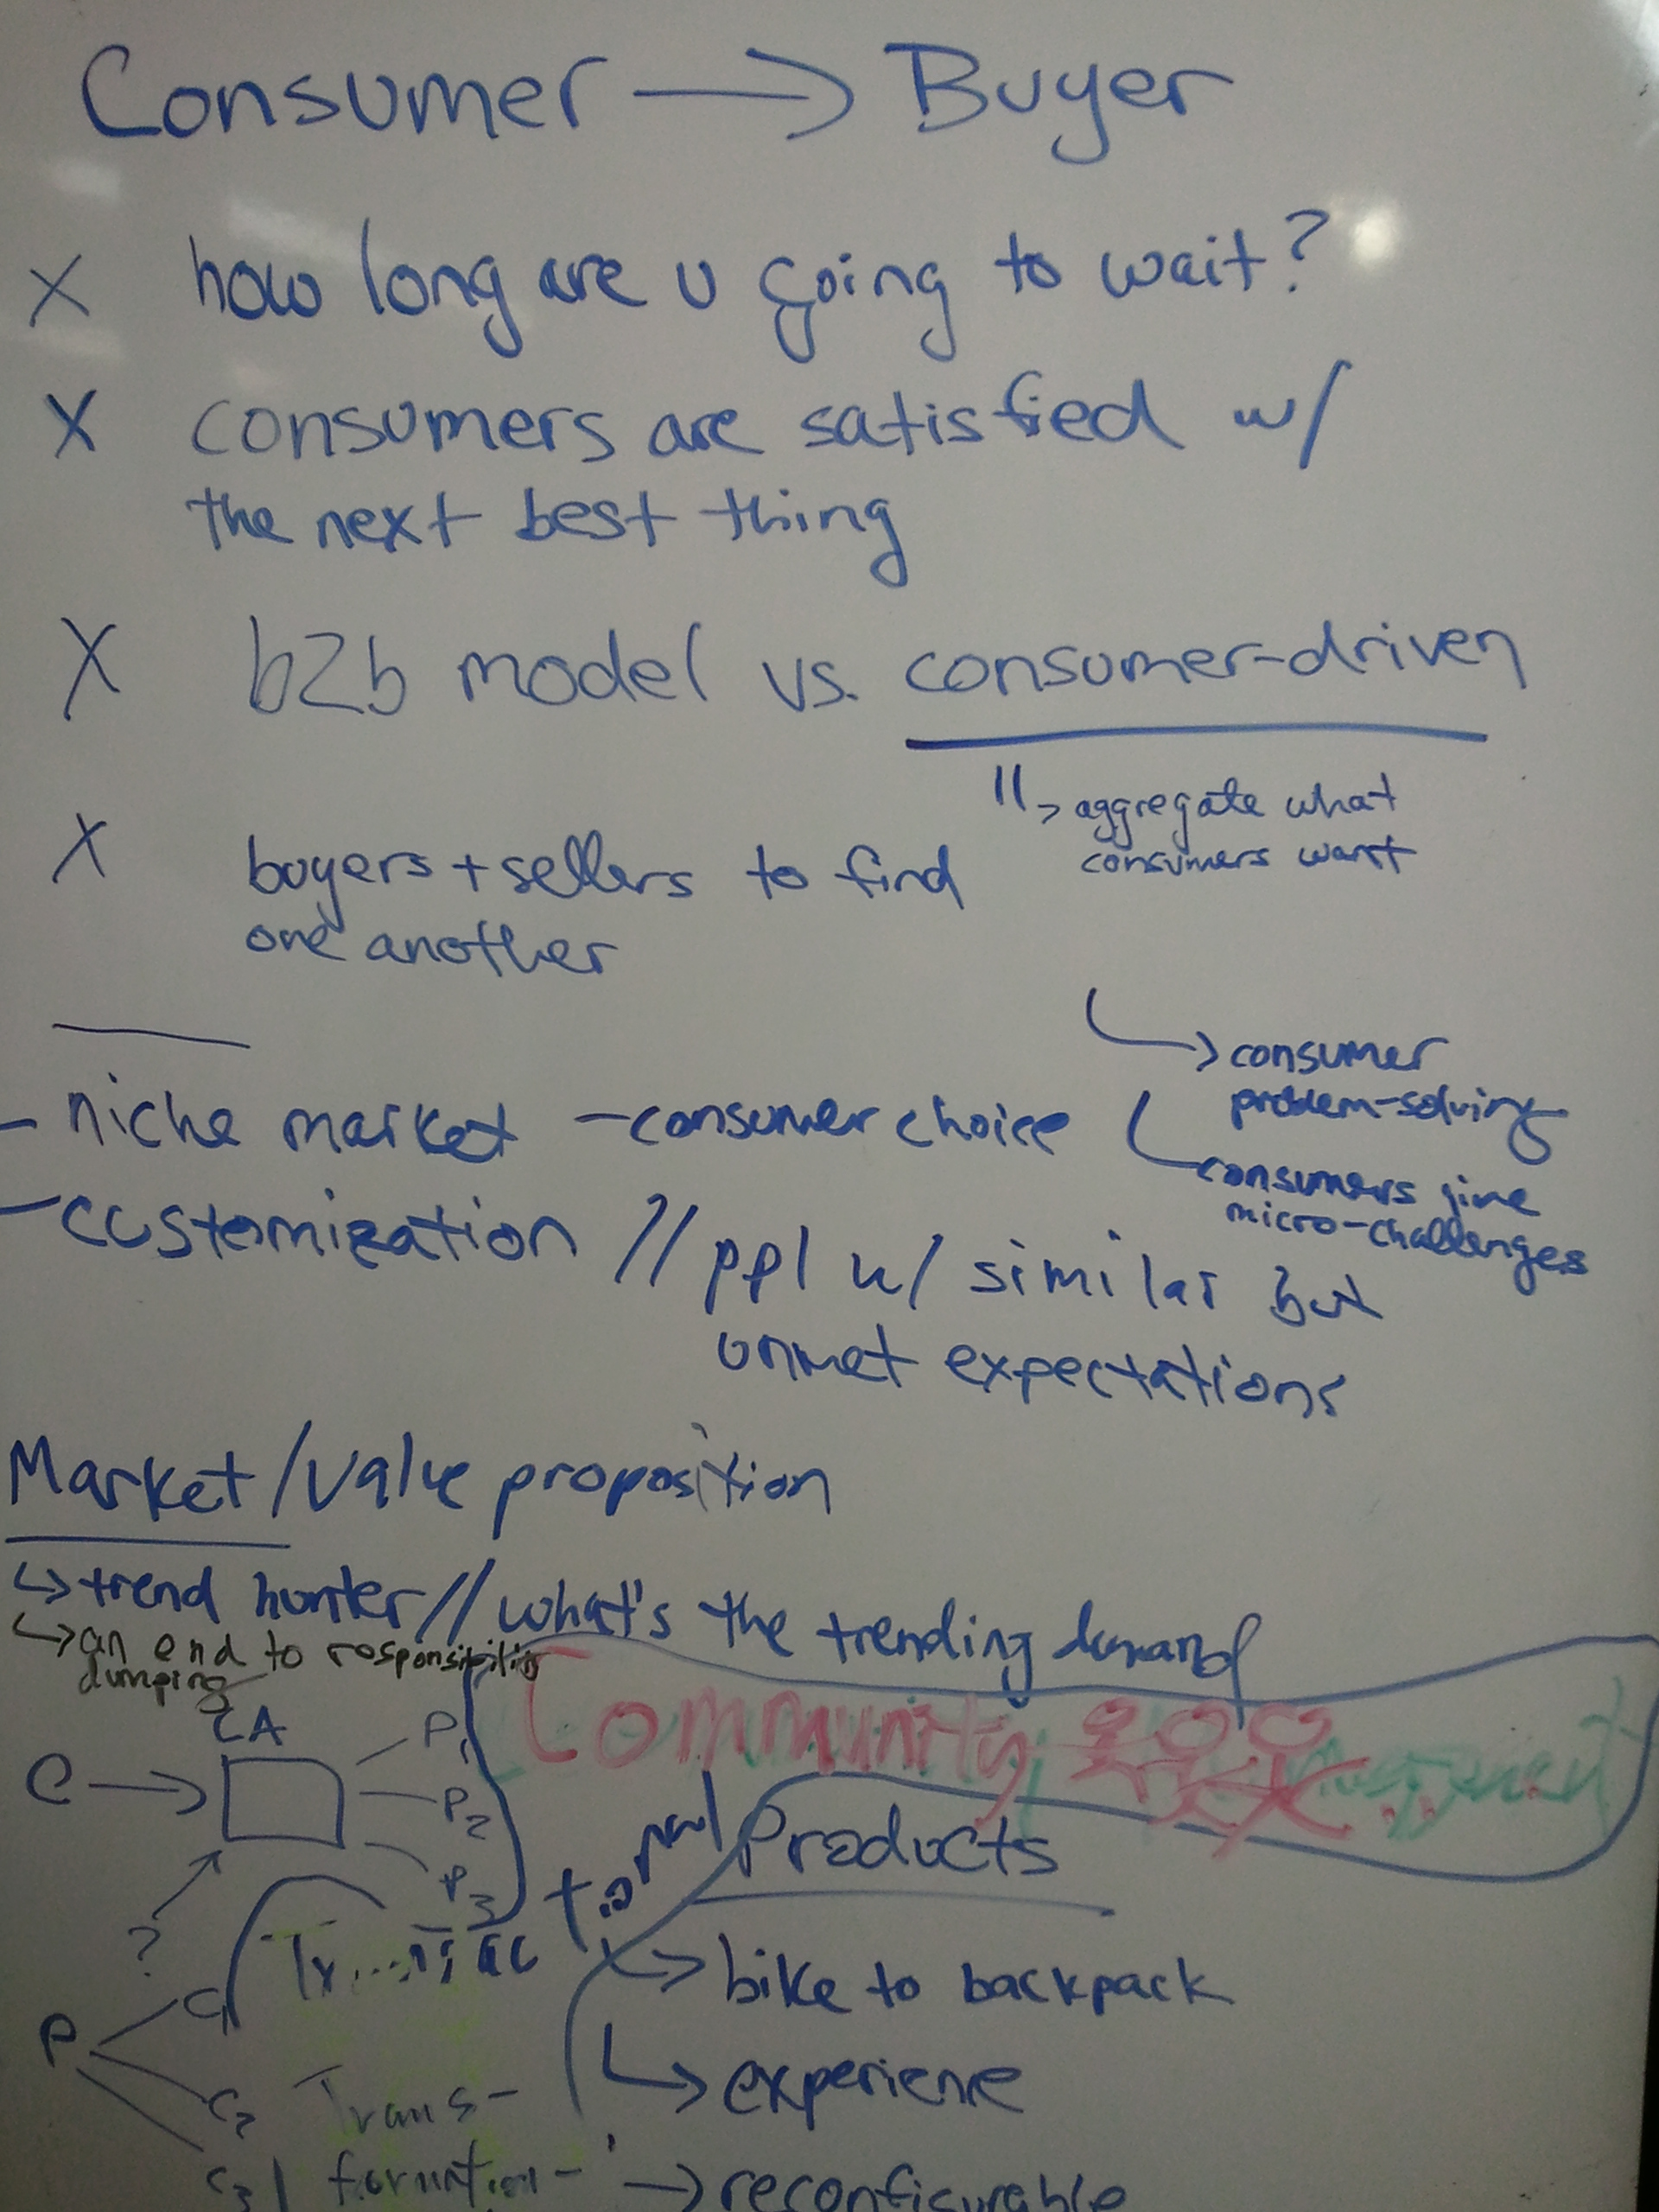 Consumer → Buyer
X how long are u going to wait?
X consumers are satisfied w/
the next best thing
X b2b model vs. consumer-driven
→ aggregate what
consumers want
X buyers + sellers to find
one another
→ consumer
problem-solving
- niche market - consumer choice
consumers
micro-challenges
- customization // ppl w/ similar but
unmet expectations
Market/value proposition
↳ trend hunter // what's the trending demand
↳ an end to responsibility
dumping
CA
C → P1
P2
P3
?
Community
Products
→ bike to backpack
↳ experience
P C1
C2
C3
Trans-
formation-
→ reconfigurable